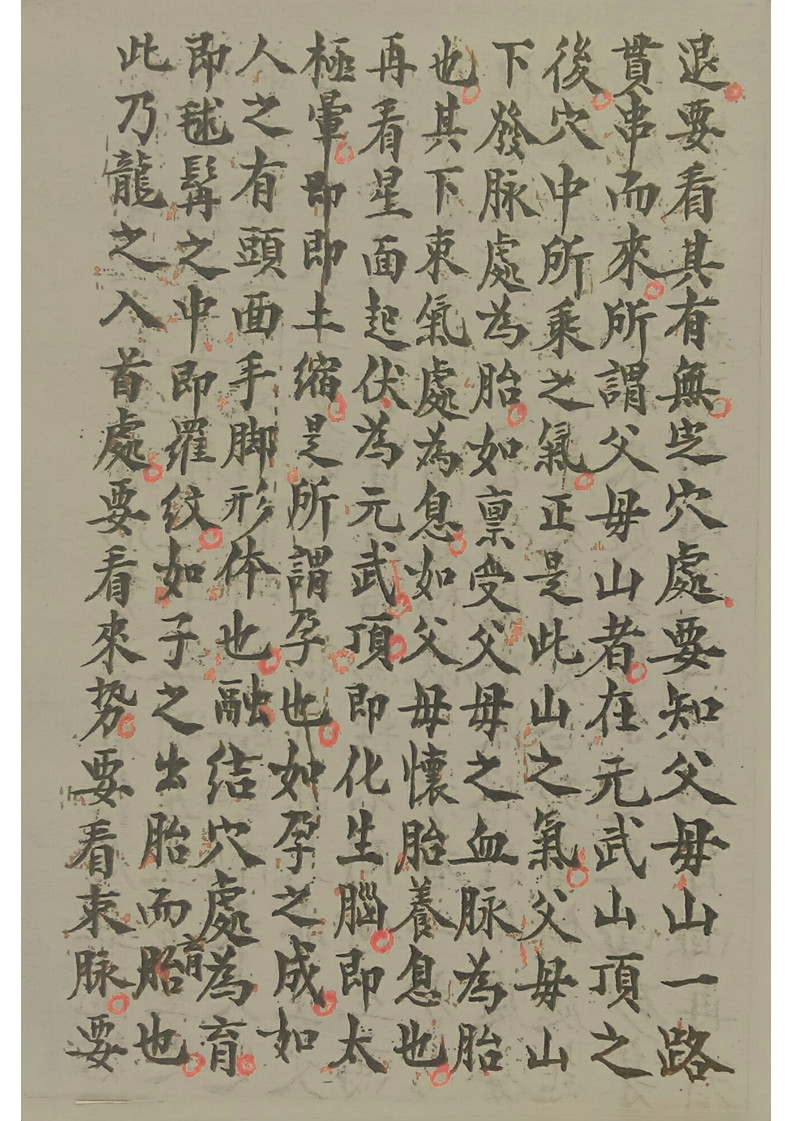 退要看其有無穴處要知父母山一路
貫串而來所謂父母山者在元武山頂之
後穴中所乘之氣正是此山之氣父母山
下發脉處為胎如禀受父母之血脉為胎
也其下束氣處為息如父母懷胎養息也
再看星面起伏為元武頂即化生腦即太
極暈即即土縮是所謂孕也如孕之成如
人之有頭面手脚形体也融結穴處為育
即毬髯之中即羅紋如子之出胎而胎育也
此乃龍之入首處要看來势要看束脉要